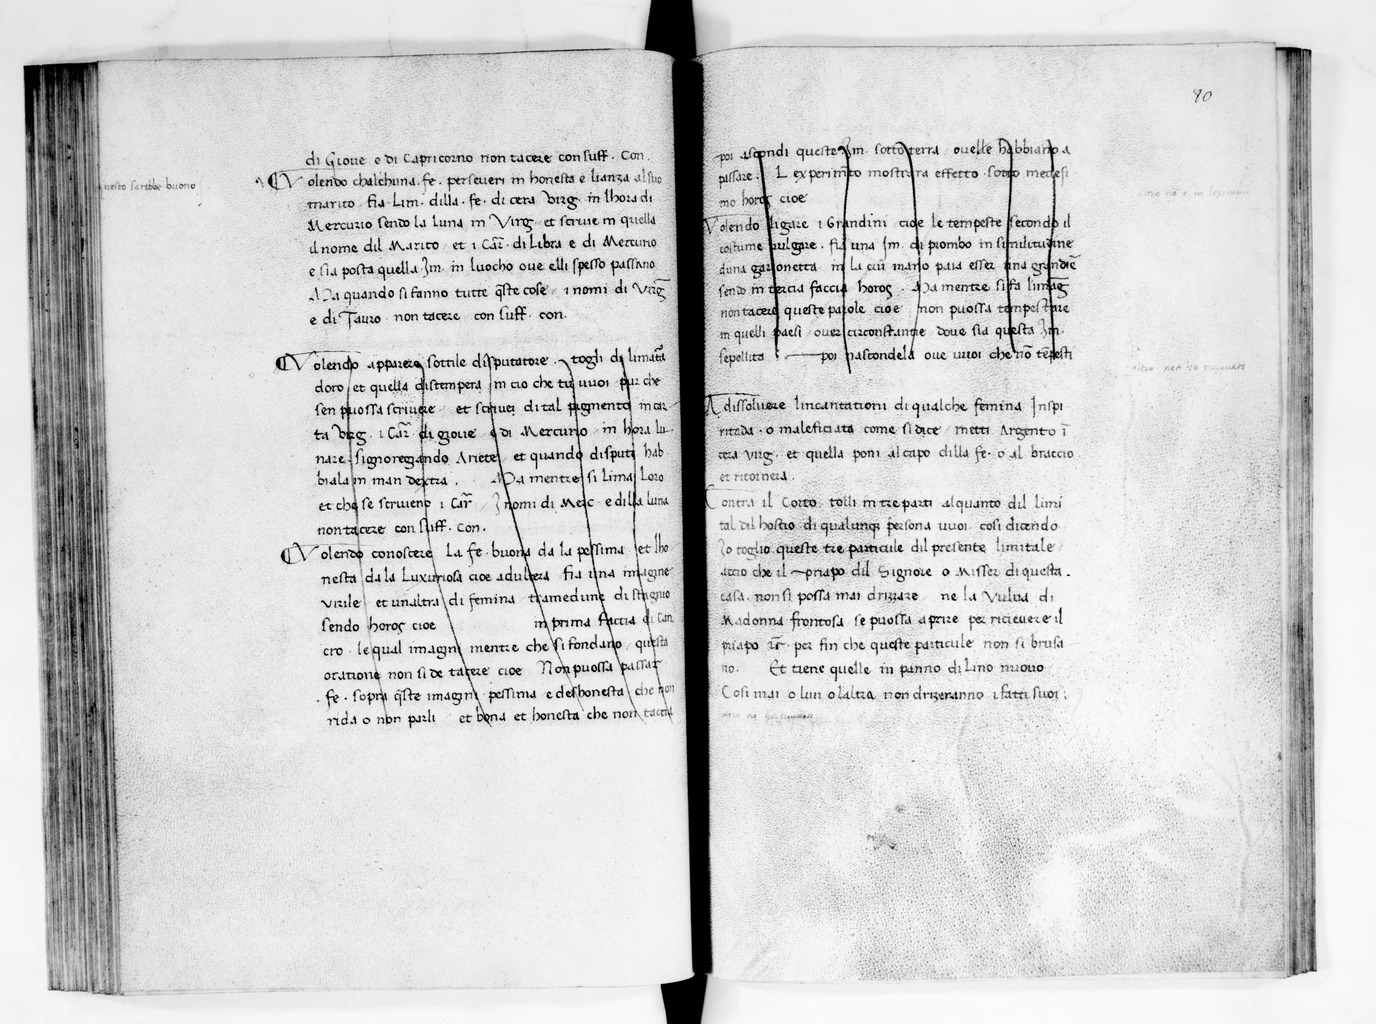 di Gioue e di Capricorno non tacere con suff. Con.
questo sarebbe buono
Volendo chalchuna. fe. perseueri in honesta e lianza al suo
marito fia Lim. dilla. fe. di cera Virg. in lhora di
Mercurio sendo la luna in Virg. et scriue in quella
il nome dil Marito et i Car̄. di Libra e di Mercurio
e sia posta quella Im. in luocho oue elli spesso passano
Ma quando si fanno tutte q̄ste cose i nomi di Virḡ
e di Tauro non tacere con suff. con.
Volendo apparere sottile disputatore. togli di limata
doro et quella distempera in cio che tu vuoi pur che
sen puossa scriuere et scriuer di tal pigmento in car
ta virg. i Car̄. di gioue e di Mercurio in hora lu
nare signoregando Ariete et quando disputi hab
biala in man dextra. Ma mentre si lima loro
et che se scriueno i Car̄ I nomi di Merc. e dilla luna
non tacere con suff. Con.
Volendo conoscere La fe. buona da la pessima et lho
nesta da la Luxuriosa cioe adultera fia una imagine
virile et unaltra di femina tramedune di stagno
sendo horosc cioe in prima faccia di Can
cro. le qual imagini mentre che si fondano questa
oratione non si de tacere cioe Non puossa passar
. fe. sopra q̄ste imagini pessima e deshonesta che non
rida o non parli et bona et honesta che non taccia
80
poi ascondi queste Im. sotto terra ouelle habbiano a
passare. Lexperim̄to mostrara effetto sotto medesi
mo horosc cioe
Volendo ligare i Grandini cioe le tempeste secondo il
costume vulgare. fia una Im. di piombo in similitudine
duna garzonetta in la cui mano paia esser una grandīe
sendo in tercia faccia horosc. Ma mentre si fa limāg
non tacere queste parole cioe non puossa tempestare
in quelli paesi ouer circonstantie doue sia questa Im.
sepellita. poi nascondela oue vuoi che nō tēpesti
A dissoluere lincantationi di qualche femina Inspi
ritada. o maleficiata come si dice metti Argento ī
cera virg. et quella poni al capo dilla fe. o al braccio
et ritornera.
Contra il Corto tolli in tre parti alquanto dil limi
tal dil hostio di qualunq persona vuoi cosi dicendo
Io toglio queste tre particule dil presente limitale
accio che il priapo dil Signore o Misser di questa
casa. non si possa mai drizzare ne la Vulua di
Madonna frontosa se puossa aprire per riceuere il
priapo per fin che queste particule non si brusa
no. Et tiene quelle in panno di Lino nuouo
Cosi mai o lun o laltra non drizeranno i fatti suoi